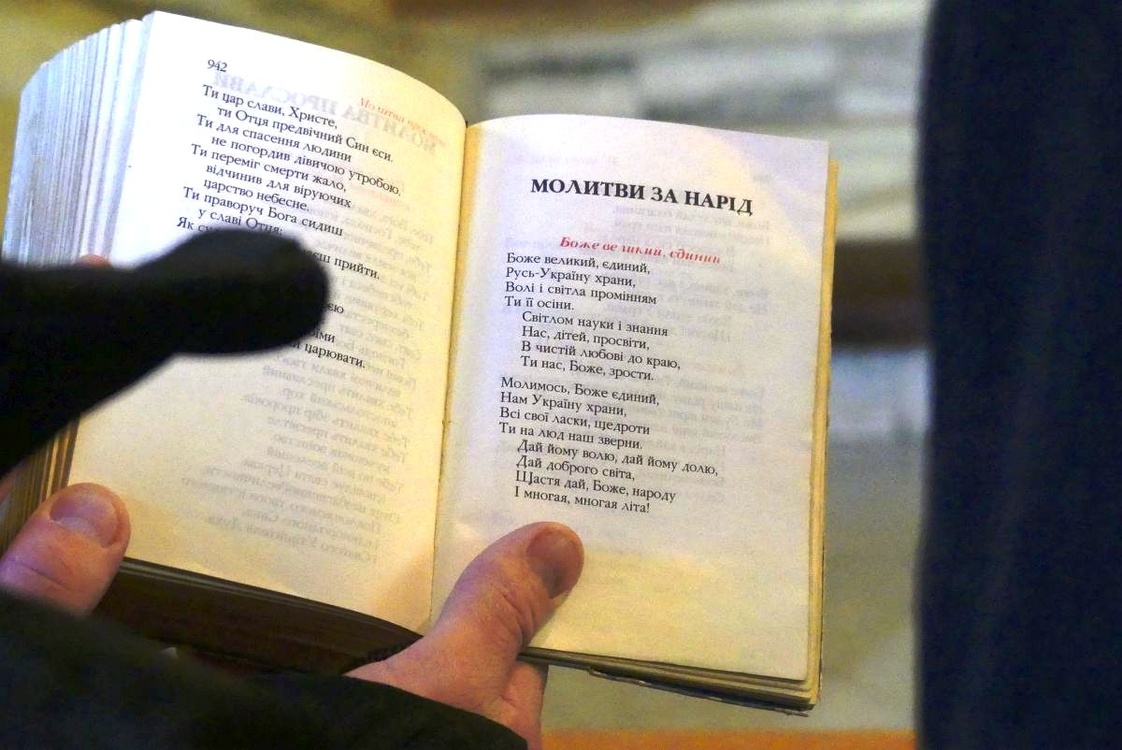 942
Ти цар слави, Христе,
ти Отця предвічний Син єси.
Ти для спасення людини
не погордив дівичою утробою.
Ти переміг смерти жало,
відчинив для віруючих
царство небесне.
Ти праворуч Бога сидиш
у славі Отця;
Як
прийти.
царювати.
МОЛИТВИ ЗА НАРІД
Боже великий, єдиний
Боже великий, єдиний,
Русь-Україну храни,
Волі і світла промінням
Ти її осіни.
Світлом науки і знання
Нас, дітей, просвіти,
В чистій любові до краю,
Ти нас, Боже, зрости.
Молимось, Боже єдиний,
Нам Україну храни,
Всі свої ласки, щедроти
Ти на люд наш зверни.
Дай йому волю, дай йому долю,
Дай доброго світа,
Щастя дай, Боже, народу
І многая, многая літа!